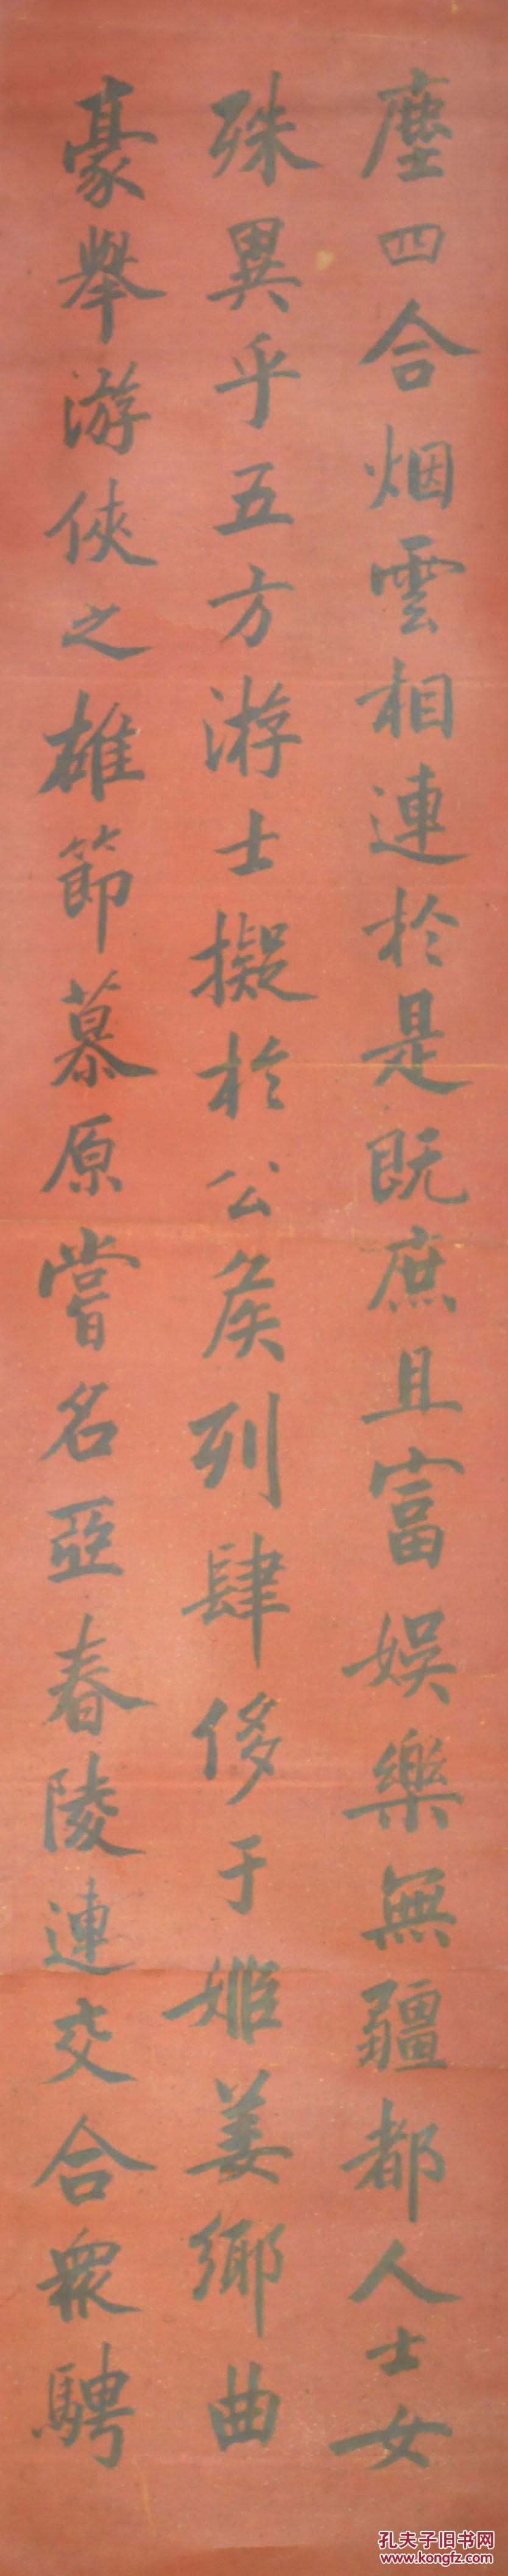 塵四合烟雲相連於是既庶且富娛樂無疆都人士女
殊異乎五方游士擬於公侯列肆侈于姬姜鄉曲
豪舉游俠之雄節慕原嘗名亞春陵連交合衆騁
孔夫子旧书网
www.kongfz.com